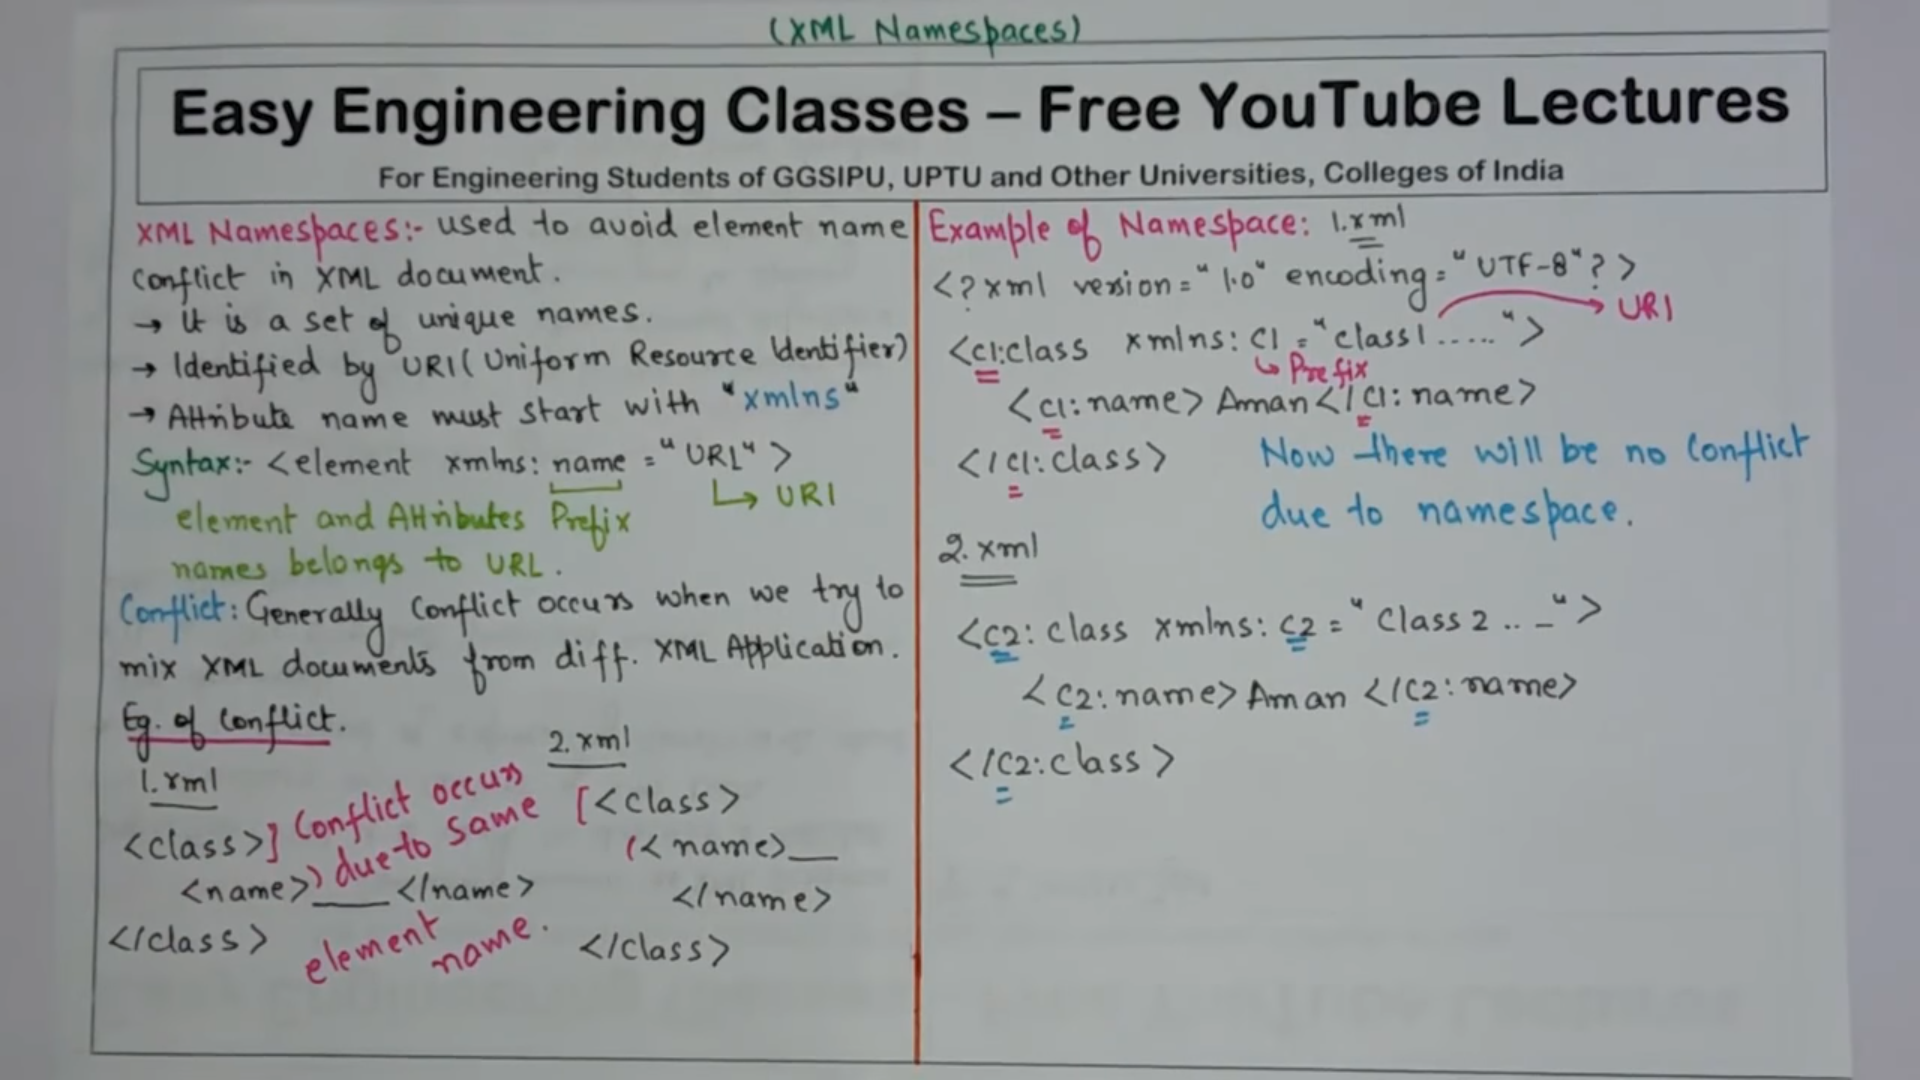 (XML Namespaces)
Easy Engineering Classes – Free YouTube Lectures
For Engineering Students of GGSIPU, UPTU and Other Universities, Colleges of India
XML Namespaces:- used to avoid element name
Conflict in XML document.
→ It is a set of unique names.
→ Identified by URI (Uniform Resource Identifier)
→ Attribute name must start with "xmlns"
Syntax:- <element xmlns: name = "URL">
↳ URI
element and Attributes Prefix
names belongs to URL.
Conflict: Generally Conflict occurs when we try to
mix XML documents from diff. XML Application.
Eg. of Conflict.
1.xml
<class>] Conflict occurs
<name>) due to same
____ </name>
</class>
element name.
2.xml
[<class>
(<name>__
</name>
</class>
Example of Namespace: 1.xml
<?xml version="1.0" encoding="UTF-8"?>
→ URI
<c1:class xmlns: c1 = "class1.....">
↳ Prefix
<c1:name> Aman</c1:name>
</c1:class>
Now there will be no Conflict
due to namespace.
2.xml
<c2: class xmlns: c2 = "Class 2 .. _">
<c2:name> Aman </c2:name>
</c2:class>